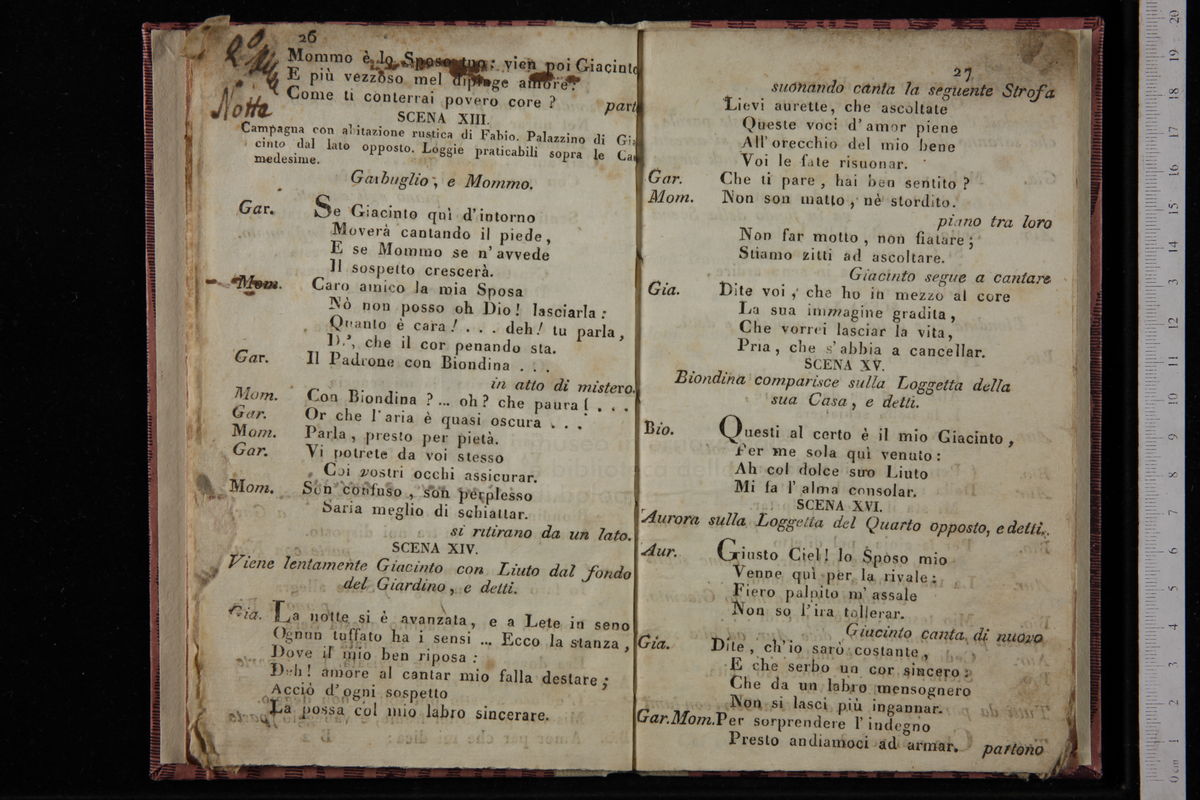 26
Notte
Mommo è lo Sposo tuo: vien poi Giacinto
E più vezzoso mel dipinge amore:
Come ti conterrai povero core ? part
SCENA XIII.
Campagna con abitazione rustica di Fabio. Palazzino di Gia
cinto dal lato opposto. Loggie praticabili sopra le Ca
medesime.
Garbuglio, e Mommo.
Gar. Se Giacinto quì d'intorno
Moverà cantando il piede,
E se Mommo se n'avvede
Il sospetto crescerà.
Mom. Caro amico la mia Sposa
Nò non posso oh Dio! lasciarla:
Quanto è cara! . . . deh! tu parla,
Dì, che il cor penando sta.
Gar. Il Padrone con Biondina . . .
in atto di mistero.
Mom. Con Biondina ?... oh? che paura! . . .
Gar. Or che l'aria è quasi oscura . . .
Mom. Parla, presto per pietà.
Gar. Vi potrete da voi stesso
Coi vostri occhi assicurar.
Mom. Son confuso, son perplesso
Saria meglio di schiattar.
si ritirano da un lato.
SCENA XIV.
Viene lentamente Giacinto con Liuto dal fondo
del Giardino, e detti.
Gia. La notte si è avanzata, e a Lete in seno
Ognun tuffato ha i sensi ... Ecco la stanza,
Dove il mio ben riposa:
Deh! amore al cantar mio falla destare;
Acciò d'ogni sospetto
La possa col mio labro sincerare.
27
suonando canta la seguente Strofa
Lievi aurette, che ascoltate
Queste voci d'amor piene
All'orecchio del mio bene
Voi le fate risuonar.
Gar. Che ti pare, hai ben sentito ?
Mom. Non son matto, nè stordito.
piano tra loro
Non far motto, non fiatare;
Stiamo zitti ad ascoltare.
Giacinto segue a cantare
Gia. Dite voi, che ho in mezzo al core
La sua immagine gradita,
Che vorrei lasciar la vita,
Pria, che s'abbia a cancellar.
SCENA XV.
Biondina comparisce sulla Loggetta della
sua Casa, e detti.
Bio. Questi al certo è il mio Giacinto,
Per me sola quì venuto:
Ah col dolce suo Liuto
Mi fa l'alma consolar.
SCENA XVI.
Aurora sulla Loggetta del Quarto opposto, e detti.
Aur. Giusto Ciel! lo Sposo mio
Venne quì per la rivale:
Fiero palpito m'assale
Non so l'ira tollerar.
Giacinto canta di nuovo
Gia. Dite, ch'io sarò costante,
E che serbo un cor sincero:
Che da un labro mensognero
Non si lasci più ingannar.
Gar. Mom. Per sorprendere l'indegno
Presto andiamoci ad armar. partono